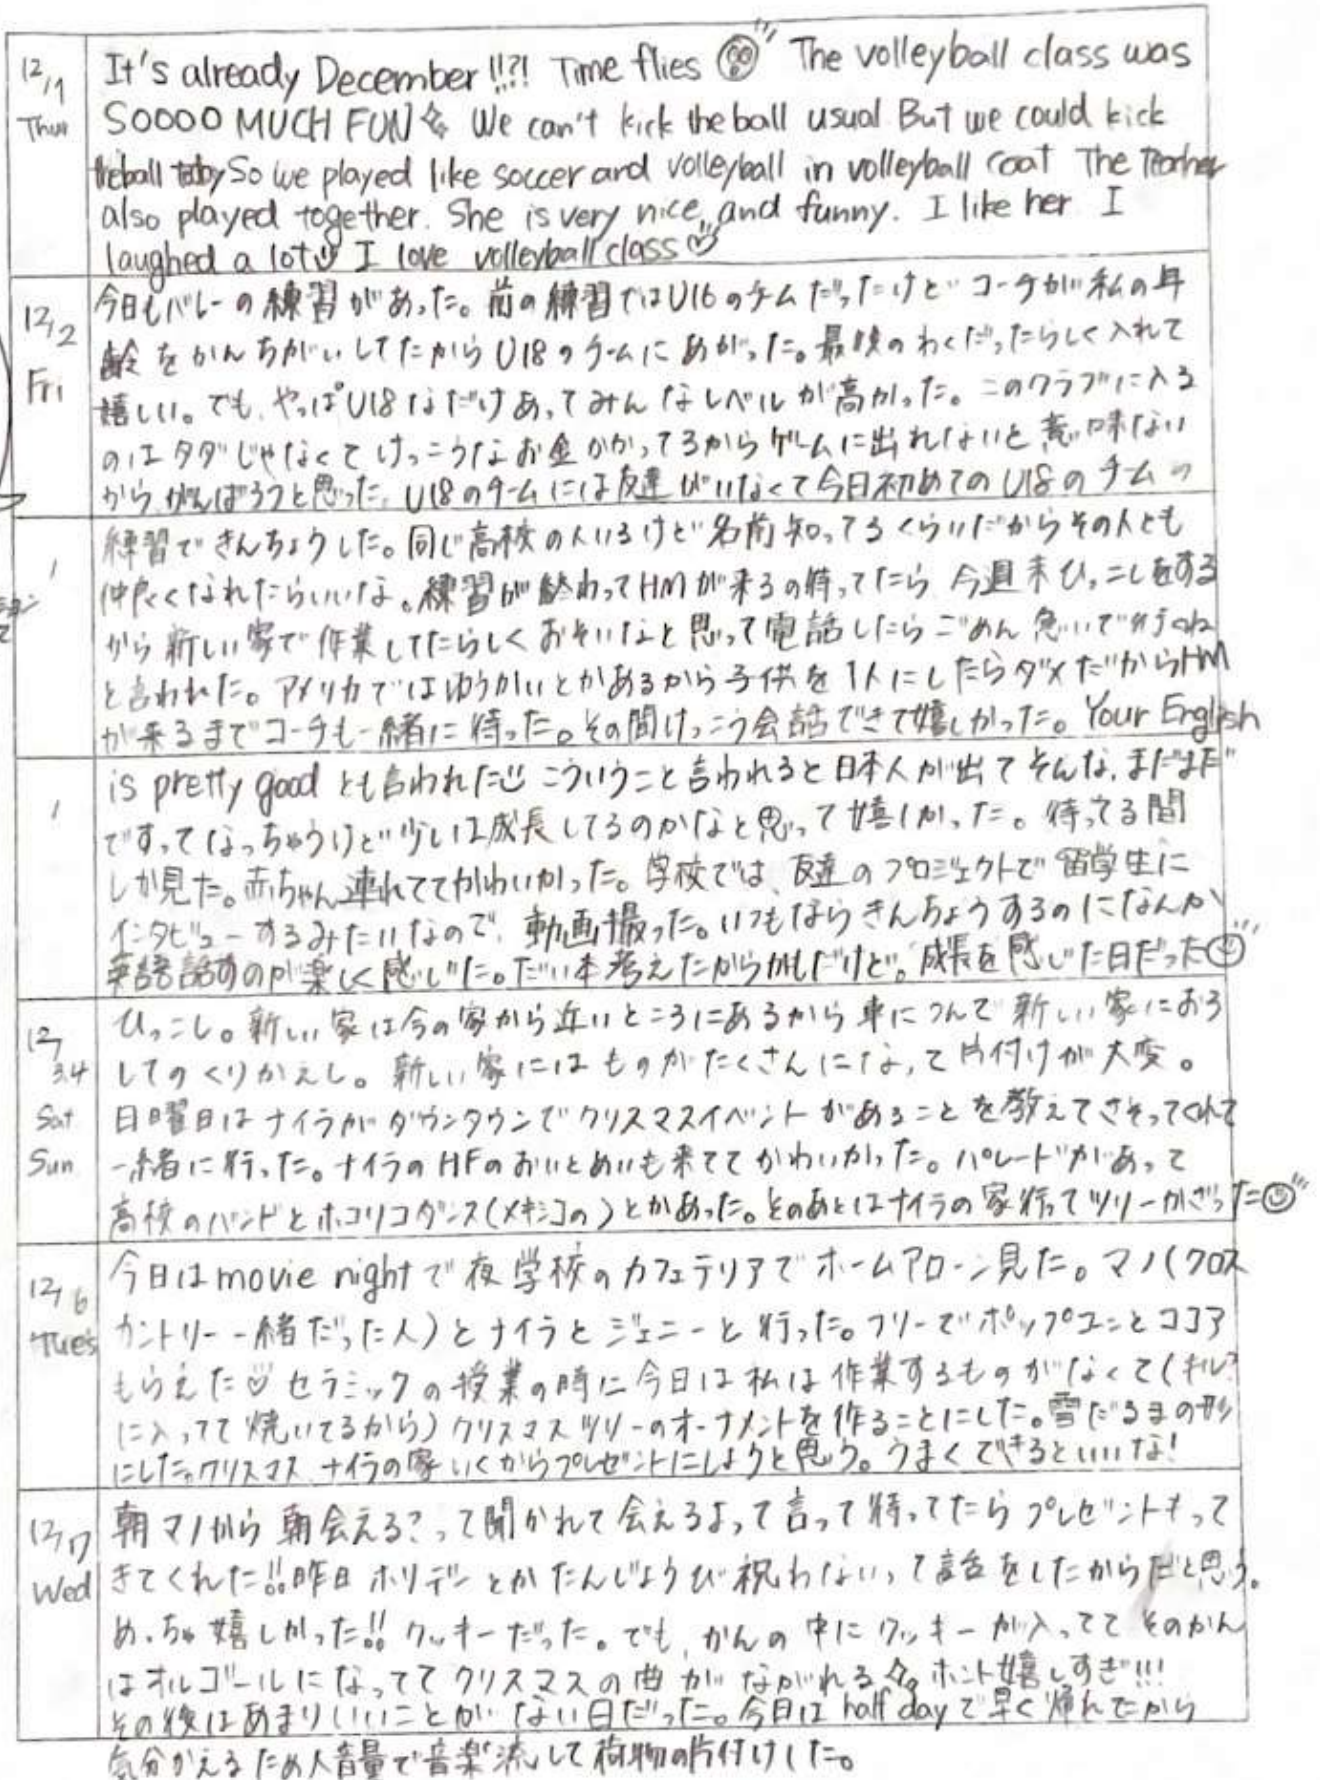 12/1
Thur
It's already December!!?! Time flies The volleyball class was
SOOOO MUCH FUN We can't kick the ball usual But we could kick
the ball today So we played like soccer and volleyball in volleyball coat The Teacher
also played together. She is very nice and funny. I like her I
laughed a lot I love volleyball class
12/2
Fri
今日もバレーの練習があった。前の練習ではU16のチームだったけどコーチが私の年
齢をかんちがいしてたからU18のチームにあがった。最後のわくだったらしく入れて
嬉しい。でも、やっぱU18なだけあってみんなレベルが高かった。このクラブに入る
のはタダじゃなくてけっこうなお金かかってるからゲームに出れないと意味ない
から、がんばろうと思った。U18のチームには友達がいなくて今日初めてのU18のチームの
練習できんちょうした。同じ高校の人いるけど名前知ってるくらいだからその人とも
仲良くなれたらいいな。練習が終わってHMが来るの待ってたら今週末ひっこしをする
から新しい家で作業してたらしくおそいなと思って電話したらごめん急いで行くね
と言われた。アメリカではゆうかいとかあるから子供を1人にしたらダメだからHM
が来るまでコーチも一緒に待った。その間けっこう会話できて嬉しかった。Your English
is pretty good とも言われた こういうこと言われると日本人が出てそんな、まだまだ
ですってなっちゃうけど少しは成長してるのかなと思って嬉しかった。待ってる間
しか見た。赤ちゃん連れててかわいかった。学校では、友達のプロジェクトで留学生に
インタビューするみたいなので、動画撮った。いつもならきんちょうするのになんか
英語話すのが楽しく感じた。だい本考えたからかもだけど。成長を感じた日だった
12/3.4
Sat
Sun
ひっこし。新しい家は今の家から近いところにあるから車につんで新しい家におろ
してのくりかえし。新しい家にはものがたくさんになって片付けが大変。
日曜日はナイラがダウンタウンでクリスマスイベントがあることを教えてさそってくれて
一緒に行った。ナイラのHFのおいとめいも来ててかわいかった。パレードがあって
高校のバンドとホコリコダンス(メキシコの)とかあった。そのあとはナイラの家行ってツリーかざった
12/6
Tues
今日はmovie nightで夜学校のカフェテリアでホームアローン見た。マノ(クロス
カントリー一緒だった人)とナイラとジェニーと行った。フリーでポップコーンとココア
もらえた セラミックの授業の時に今日は私は作業するものがなくて(キルン
に入ってて焼いてるから)クリスマスツリーのオーナメントを作ることにした。雪だるまの形
にした。クリスマス、ナイラの家いくからプレゼントにしようと思う。うまくできるといいな!
12/7
Wed
朝マノから朝会える?って聞かれて会えるよって言って待ってたらプレゼントもって
きてくれた!!昨日ホリデーとかたんじょうび祝わないって話をしたからだと思う。
めっちゃ嬉しかった!!クッキーだった。でも、かんの中にクッキーが入っててそのかん
はオルゴールになっててクリスマスの曲がながれる ホント嬉しすぎ!!!
その後はあまりいいことがない日だった。今日はhalf dayで早く帰れたから
気分かえるため大音量で音楽流して荷物の片付けした。